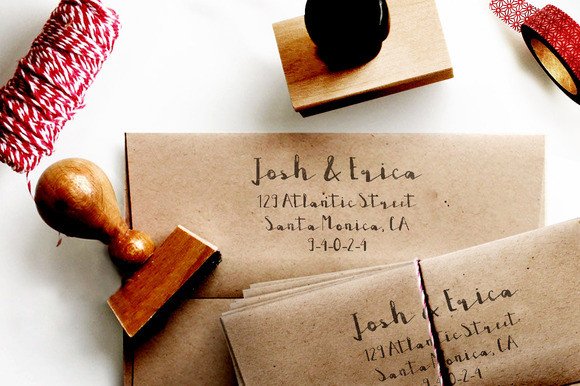 Josh & Erica
129 Atlantic Street
Santa Monica, CA
9-4-0-2-4
Josh & Erica
129 Atlantic Street
Santa Monica, CA
4-0-2-4